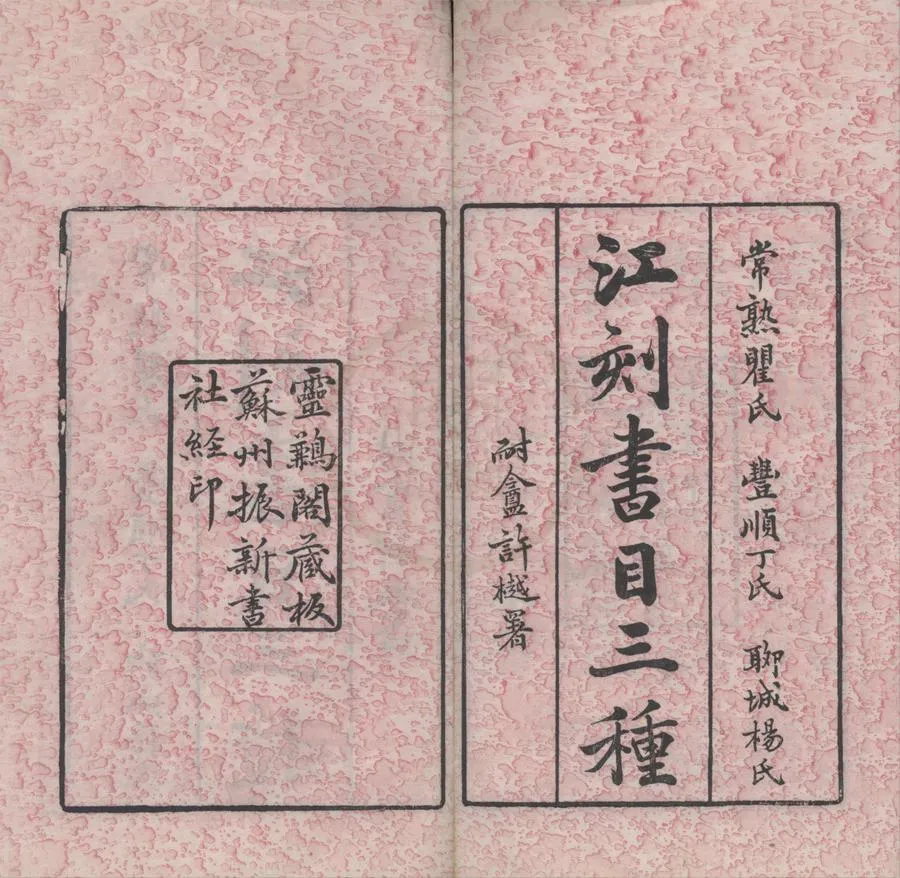 常熟瞿氏 豐順丁氏 聊城楊氏
江刻書目三種
耐盦許樾署
靈鶼閣藏板
蘇州振新書
社経印